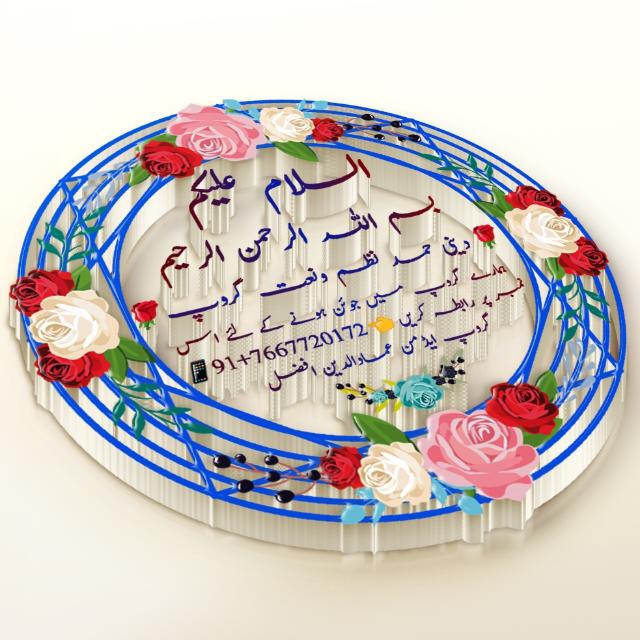 السلام علیکم
بسم اللہ الرحمن الرحیم
دینی حمد نظم ونعت گروپ
ہمارے گروپ میں جوئن ہونے کے لئے اس
نمبر پر رابطہ کریں 👈7667720172+91📱
گروپ ایڈمن عمادالدین افضل